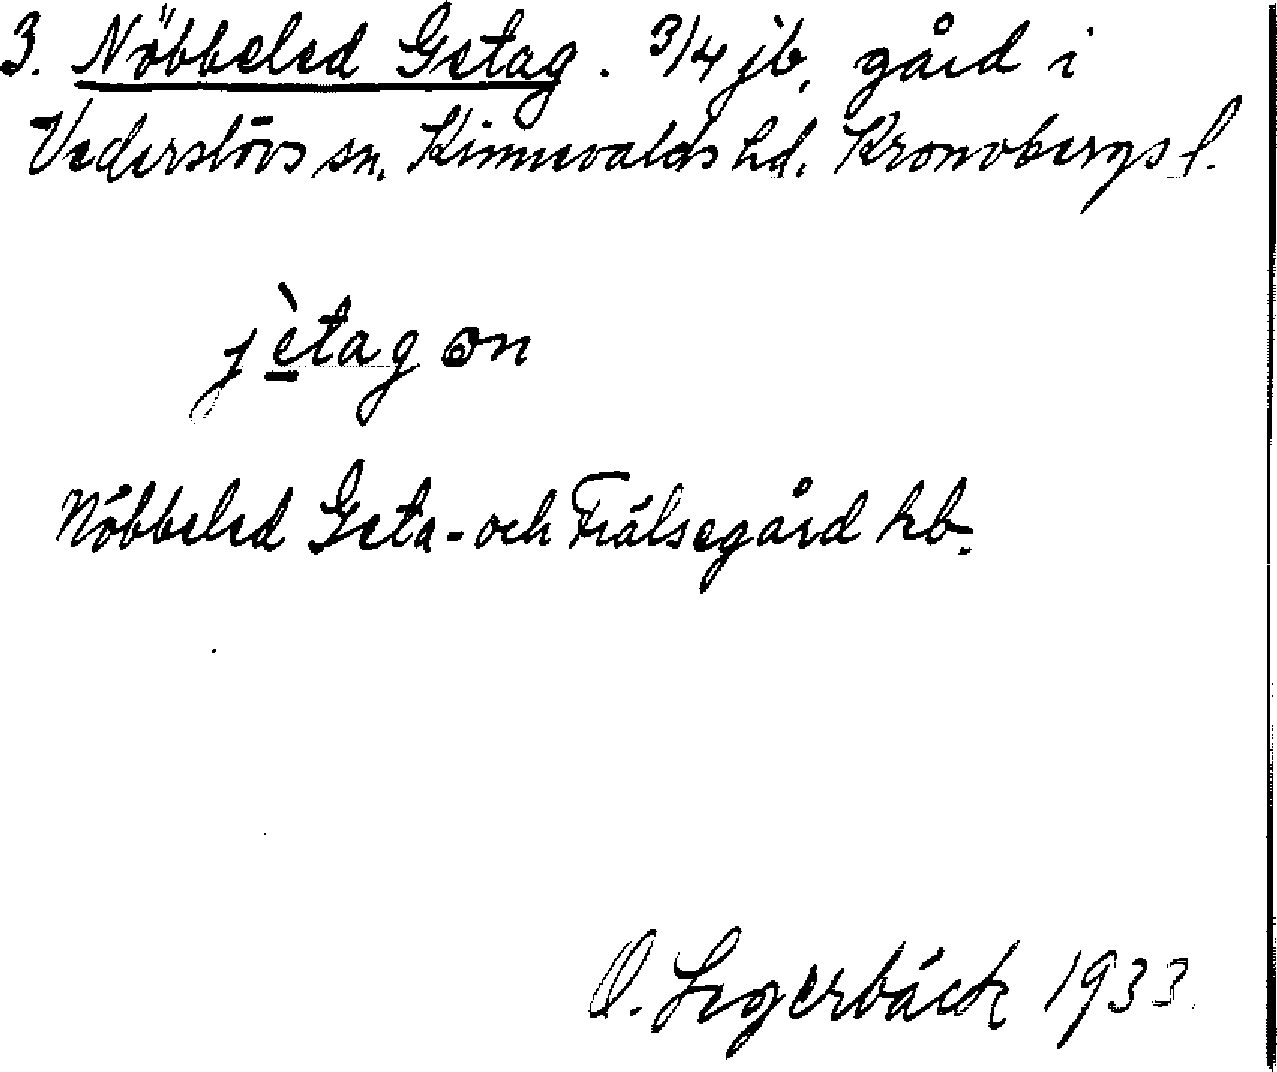 3. Nöbbeled Getag. 3/4 jb, gård i
Vederslövs sn. Kinnevalds hd. Kronobergs l.
jètag on
Nöbbeled Geta- och Frälsegård hb.
O. Legerbäck 1933.